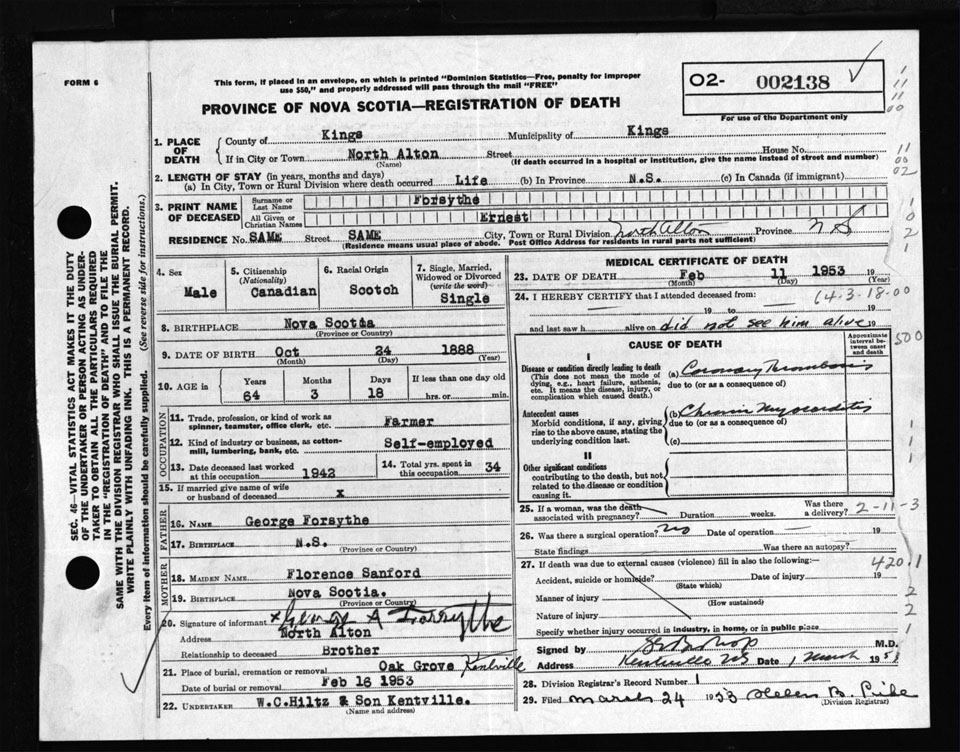 FORM 6
This form, if placed in an envelope, on which is printed "Dominion Statistics—Free, penalty for improper
use $50," and properly addressed will pass through the mail "FREE"
PROVINCE OF NOVA SCOTIA—REGISTRATION OF DEATH
O2- 002138
For use of the Department only
1. PLACE OF DEATH County of Kings Municipality of Kings
If in City or Town North Alton Street House No.
(Name) (If death occurred in a hospital or institution, give the name instead of street and number)
2. LENGTH OF STAY (in years, months and days)
(a) In City, Town or Rural Division where death occurred Life (b) In Province N.S. (c) In Canada (if immigrant)
3. PRINT NAME OF DECEASED Surname or Last Name Forsythe
All Given or Christian Names Ernest
RESIDENCE No. SAME Street SAME City, Town or Rural Division North Alton Province N S
(Residence means usual place of abode. Post Office Address for residents in rural parts not sufficient)
4. Sex
Male
5. Citizenship
(Nationality)
Canadian
6. Racial Origin
Scotch
7. Single, Married,
Widowed or Divorced
(write the word)
Single
8. BIRTHPLACE Nova Scotia
(Province or Country)
9. DATE OF BIRTH Oct 24 1888
(Month) (Day) (Year)
10. AGE in Years Months Days If less than one day old
64 3 18 hrs. or min.
OCCUPATION
11. Trade, profession, or kind of work as
spinner, teamster, office clerk, etc. Farmer
12. Kind of industry or business, as cotton-
mill, lumbering, bank, etc. Self-employed
13. Date deceased last worked
at this occupation 1942
14. Total yrs. spent in
this occupation 34
15. If married give name of wife
or husband of deceased x
FATHER
16. NAME George Forsythe
17. BIRTHPLACE N.S.
(Province or Country)
MOTHER
18. MAIDEN NAME Florence Sanford
19. BIRTHPLACE Nova Scotia.
(Province or Country)
20. Signature of informant x George A Forsythe
Address North Alton
Relationship to deceased Brother
21. Place of burial, cremation or removal Oak Grove Kentville
Date of burial or removal Feb 16 1953
22. UNDERTAKER W.C.Hiltz & Son Kentville.
(Name and address)
MEDICAL CERTIFICATE OF DEATH
23. DATE OF DEATH Feb 11 1953 19
(Month) (Day) (Year)
24. I HEREBY CERTIFY that I attended deceased from: 64-3-18-00
19 to 19
and last saw h alive on did not see him alive 19
CAUSE OF DEATH
Approximate
interval be-
tween onset
and death
I
Disease or condition directly leading to death (a) Coronary Thrombosis
(This does not mean the mode of
dying, e.g., heart failure, asthenia,
etc. It means the disease, injury, or
complication which caused death.)
due to (or as a consequence of)
Antecedent causes (b) Chronic Myocarditis
Morbid conditions, if any, giving
rise to the above cause, stating the
underlying condition last.
due to (or as a consequence of)
(c)
II
Other significant conditions
contributing to the death, but not
related to the disease or condition
causing it.
25. If a woman, was the death
associated with pregnancy? Duration weeks. Was there
a delivery? 2-11-3
26. Was there a surgical operation? no Date of operation 19
State findings Was there an autopsy?
27. If death was due to external causes (violence) fill in also the following: 420.1
Accident, suicide or homicide? Date of injury 19
(State which)
Manner of injury
(How sustained)
Nature of injury
Specify whether injury occurred in industry, in home, or in public place
Signed by M.D.
Address Kentville NS Date 1 March 195
28. Division Registrar's Record Number 1
29. Filed March 24 1953 Helen B. Pike
(Division Registrar)
SEC. 46—VITAL STATISTICS ACT MAKES IT THE DUTY
OF THE UNDERTAKER OR PERSON ACTING AS UNDER-
TAKER TO OBTAIN ALL THE PARTICULARS REQUIRED
IN THE "REGISTRATION OF DEATH" AND TO FILE THE
SAME WITH THE DIVISION REGISTRAR WHO SHALL ISSUE THE BURIAL PERMIT.
WRITE PLAINLY WITH UNFADING INK. THIS IS A PERMANENT RECORD.
Every item of information should be carefully supplied. (See reverse side for instructions.)